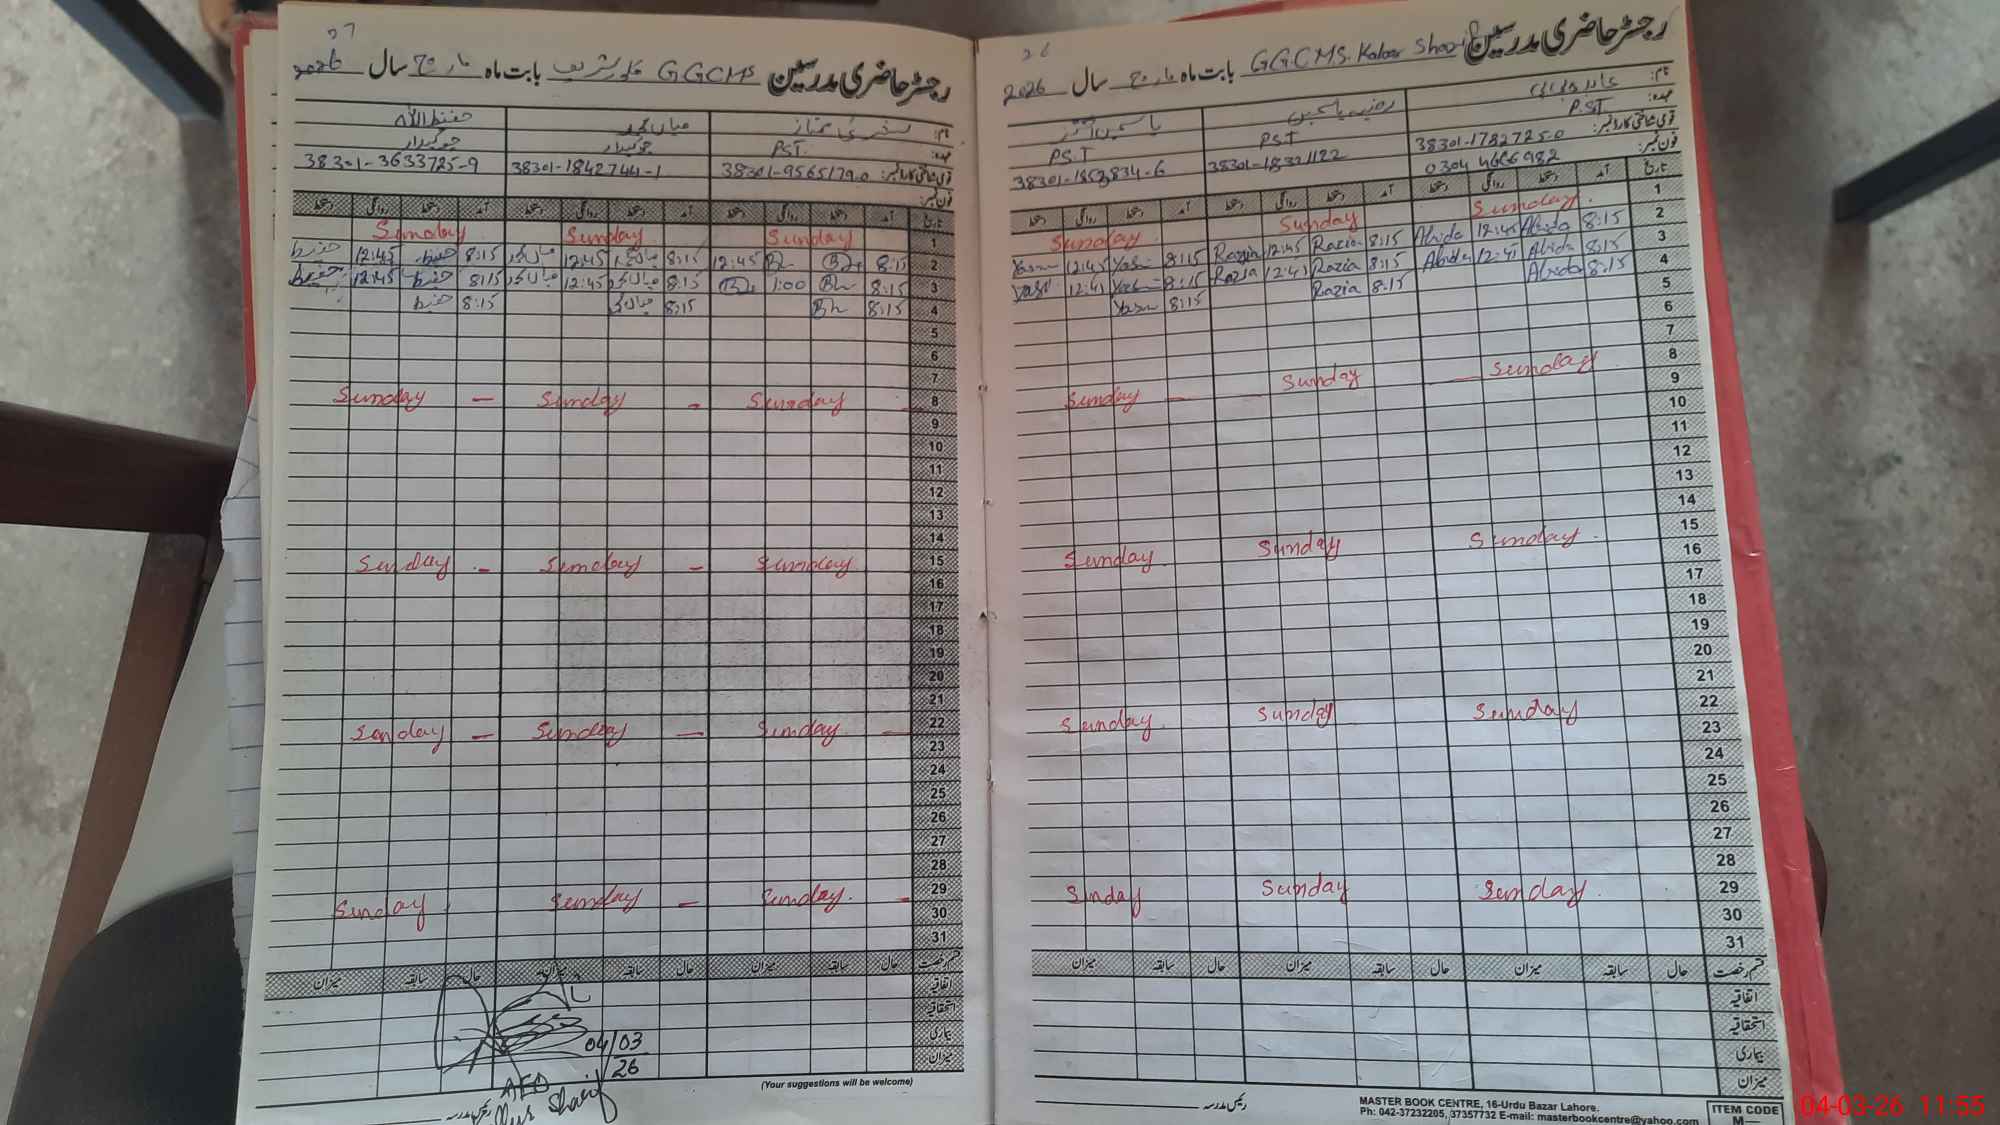 26
رجسٹر حاضری مدرسین GGCMS. Kaloor Sharif بابت ماہ مارچ سال 2026
نام: عابدہ بی بی رضیہ یاسمین یاسمین اختر
عہدہ: P.ST PST PS.T
قومی شناختی کارڈ نمبر: 38301-1782725-0
فون نمبر: 0304 4666982
تاریخ آمد دستخط روانگی دستخط آمد دستخط روانگی دستخط آمد دستخط روانگی دستخط
1 Sunday Sunday Sunday
2 8:15 Abida 12:45 Abida 8:15 Razia 12:45 Razia 8:15 Yasm 12:45 Yasm
3 8:15 Abida 12:45 Abida 8:15 Razia 12:45 Razia 8:15
4 8:15 Abida 8:15 Razia 8:15 Yasm
5
6
7
8 Sunday Sunday Sunday
9
10
11
12
13
14
15 Sunday Sunday Sunday
16
17
18
19
20
21
22 Sunday Sunday Sunday
23
24
25
26
27
28
29 Sunday Sunday Sunday
30
31
قسم رخصت حال سابقہ میزان حال سابقہ میزان حال سابقہ میزان
اتفاقیہ
استحقاقیہ
بیماری
میزان
رئیس مدرسہ
MASTER BOOK CENTRE, 16-Urdu Bazar Lahore.
Ph: 042-37232205, 37357732 E-mail: masterbookcentre@yahoo.com
ITEM CODE
M—
27
رجسٹر حاضری مدرسین GGCMS کلور شریف بابت ماہ مارچ سال 2026
نام: ممتاز میاں محمد حفیظ اللہ
عہدہ: PST. چوکیدار چوکیدار
قومی شناختی کارڈ نمبر: 38301-9565179-0 38301-1842744-1 38301-3633725-9
فون نمبر:
تاریخ آمد دستخط روانگی دستخط آمد دستخط روانگی دستخط آمد دستخط روانگی دستخط
1 Sunday Sunday Sunday
2 8:15 12:45 8:15 میاں محمد 12:45 میاں محمد 8:15 حفیظ 12:45 حفیظ
3 8:15 1:00 8:15 میاں محمد 12:45 میاں محمد 8:15 حفیظ 12:45 حفیظ
4 8:15 8:15 میاں محمد 8:15 حفیظ
5
6
7
8 Sunday - Sunday - Sunday
9
10
11
12
13
14
15 Sunday - Sunday - Sunday
16
17
18
19
20
21
22 Sunday - Sunday - Sunday
23
24
25
26
27
28
29 Sunday - Sunday Sunday
30
31
قسم رخصت حال سابقہ میزان حال سابقہ میزان حال سابقہ میزان
اتفاقیہ
استحقاقیہ
بیماری
میزان
04/03
26
AEO
Sharif
رئیس مدرسہ
(Your suggestions will be welcome)
04-03-26 11:55